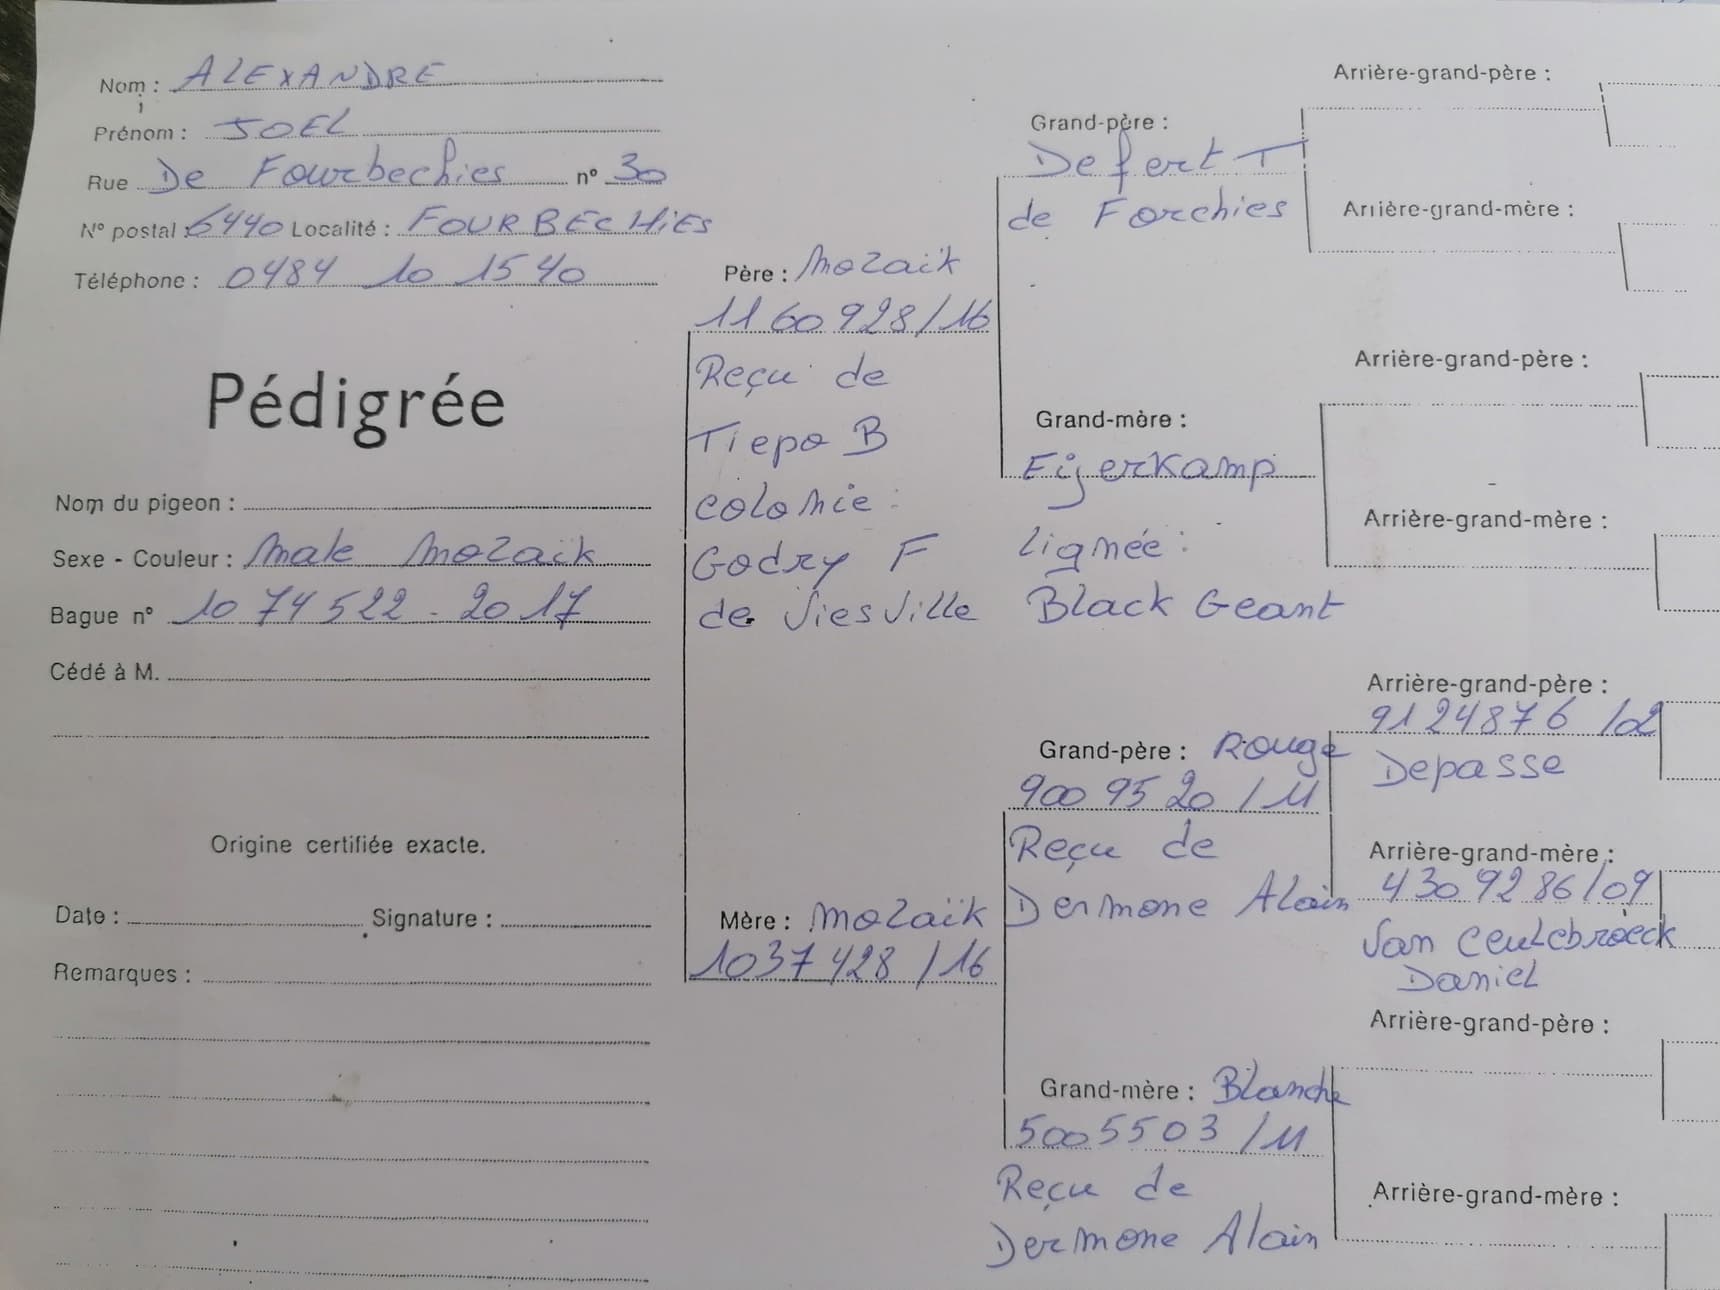 Nom : ALEXANDRE
Prénom : JOEL
Rue De Fourbechies n° 30
N° postal : 6440 Localité : FOURBECHiES
Téléphone : 0484 10 1540
Pédigrée
Nom du pigeon :
Sexe - Couleur : Male Mozaik
Bague n° 10 74 522 - 2017
Cédé à M.
Origine certifiée exacte.
Date : Signature :
Remarques :
Père : Mozaik
11 60 928/16
Reçu de
Tiepo B
colonie :
Godry F
de Viesville
Mère : Mozaik
1037428/16
Grand-père :
Defert T
de Forchies
Grand-mère :
Eijerkamp
lignée :
Black Geant
Grand-père : Rouge
900 95 20/11
Reçu de
Dermone Alain
Grand-mère : Blanche
5005503/11
Reçu de
Dermone Alain
Arrière-grand-père :
Arrière-grand-mère :
Arrière-grand-père :
Arrière-grand-mère :
Arrière-grand-père :
9124876/02
Depasse
Arrière-grand-mère :
430 92 86/09
Van Ceulebroeck
Daniel
Arrière-grand-père :
Arrière-grand-mère :